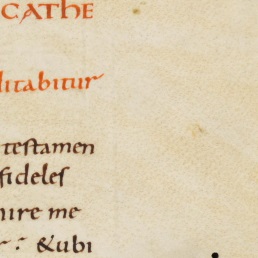 CATHE
litabitur
testamen
fideles
nire me
r : &ubi